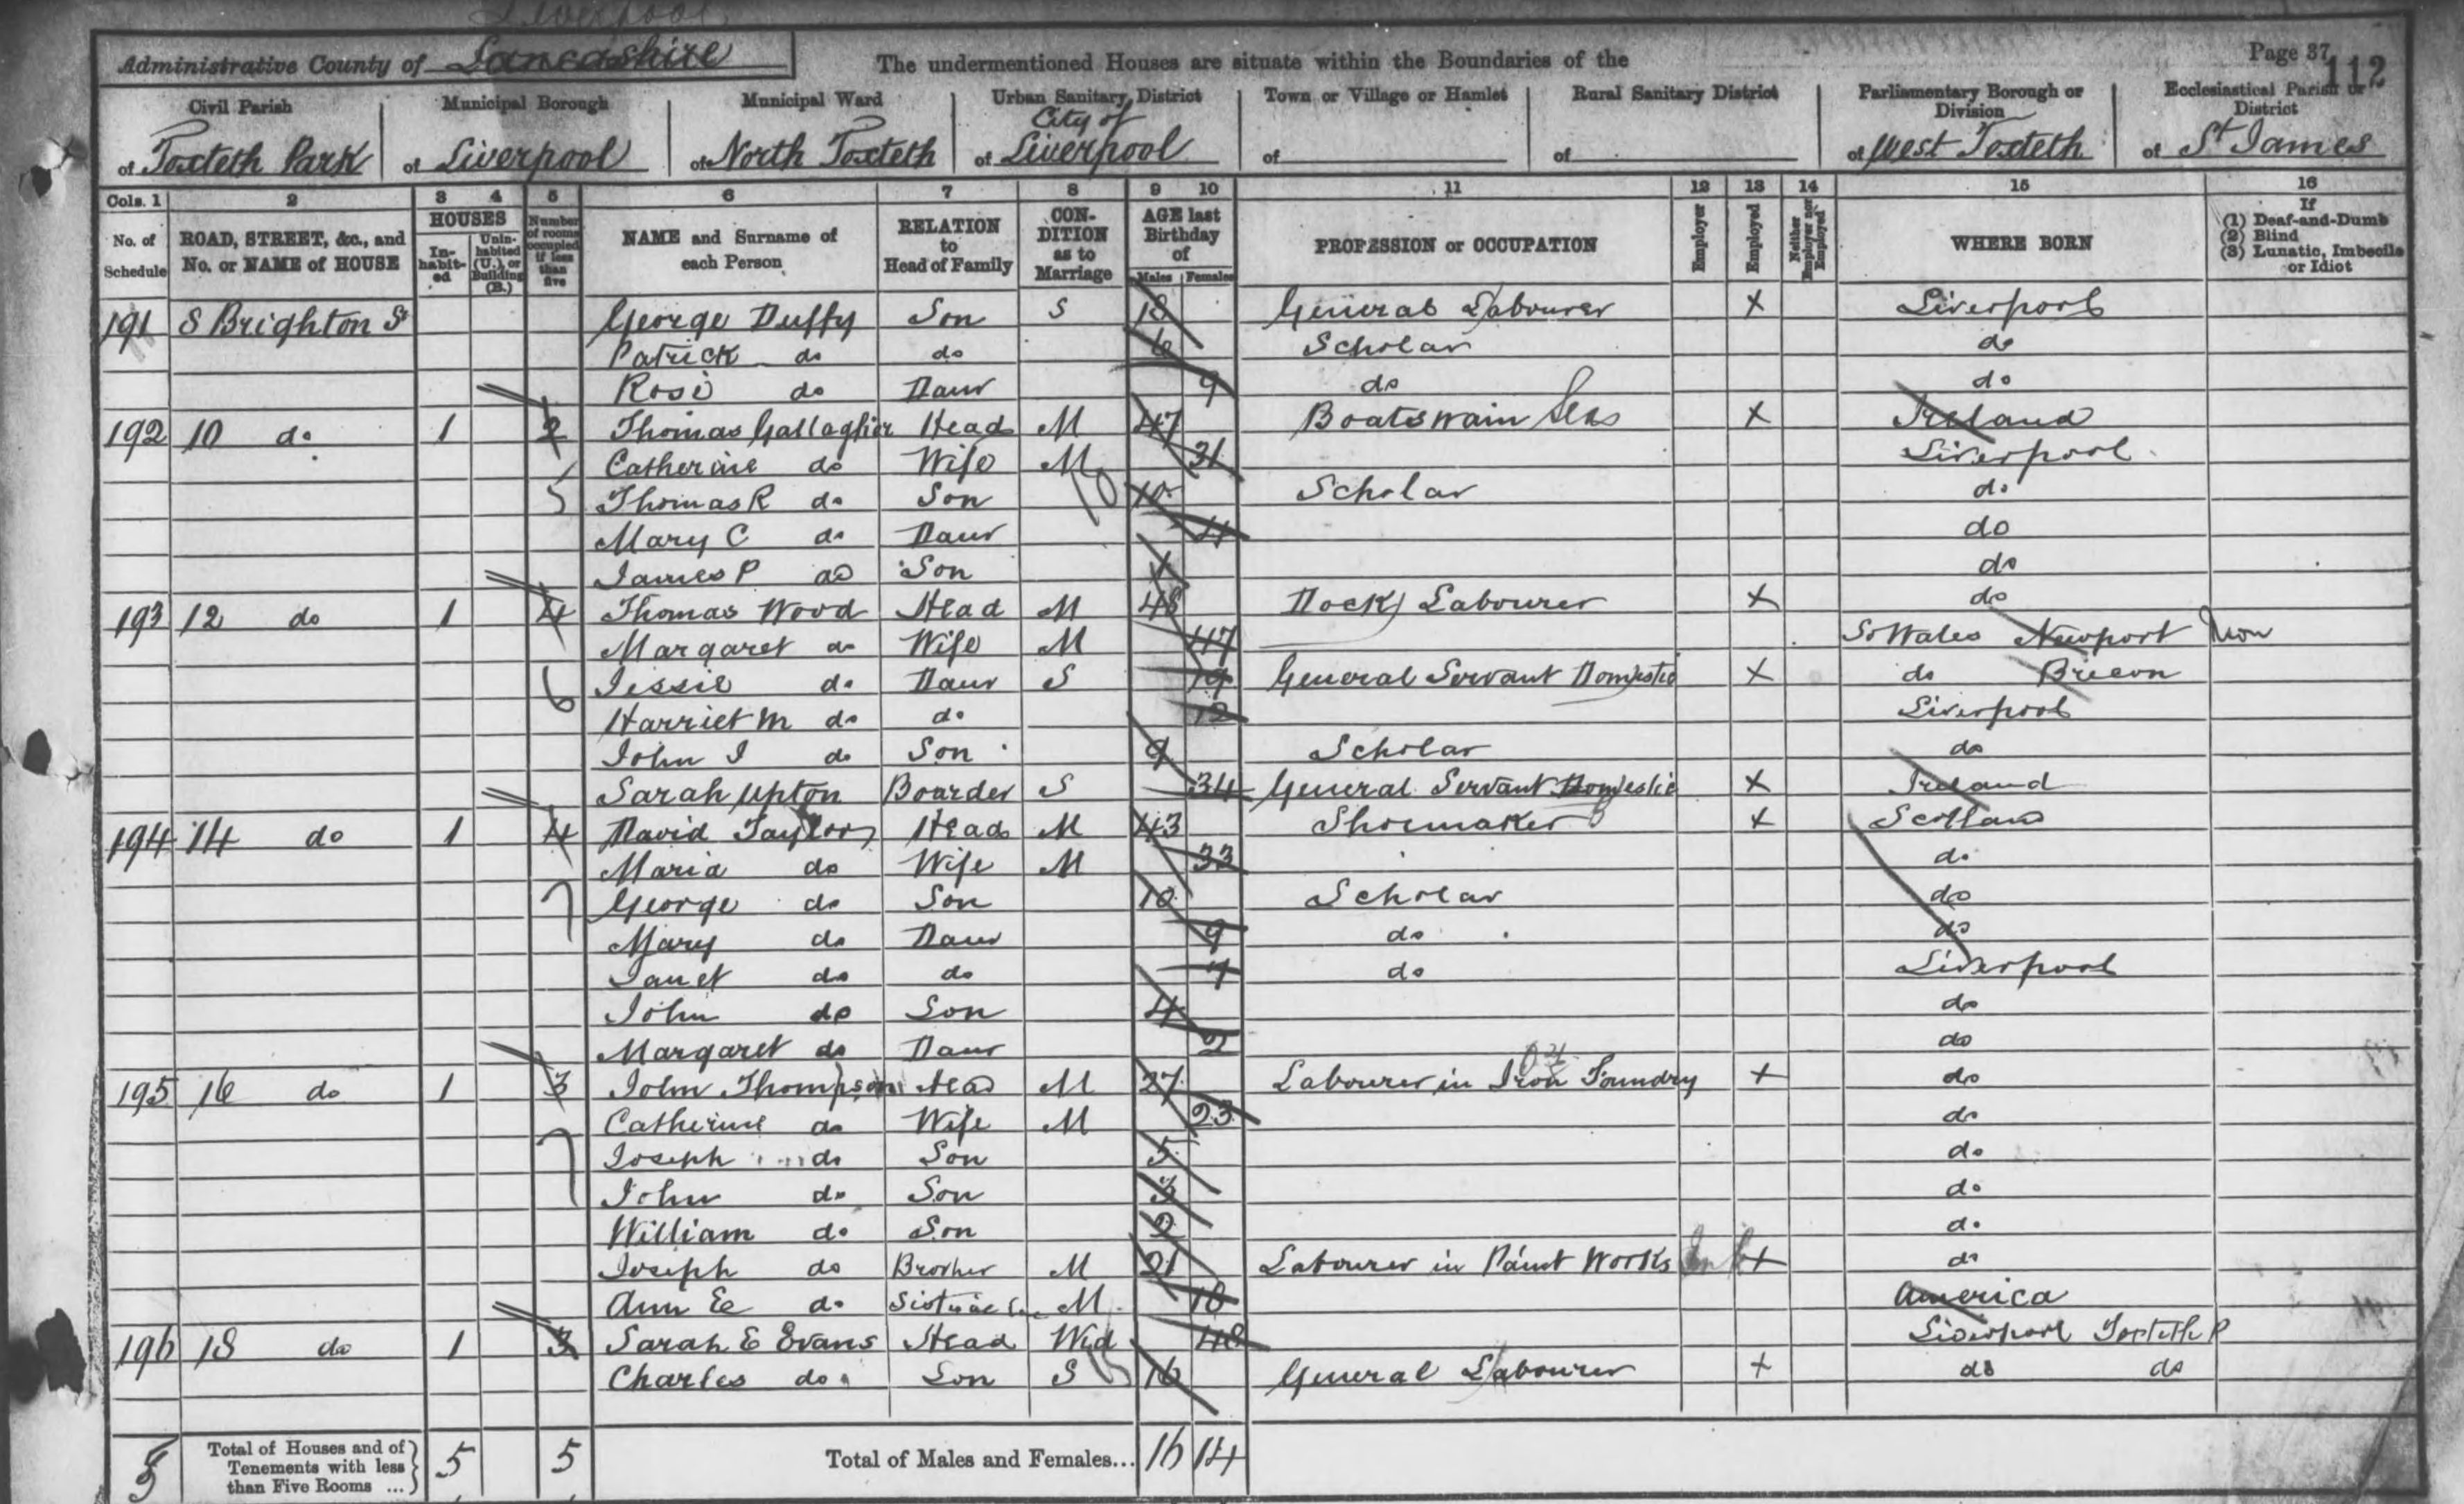 Liverpool
Administrative County of Lancashire The undermentioned Houses are situate within the Boundaries of the Page 37 112
Civil Parish Municipal Borough Municipal Ward Urban Sanitary District Town or Village or Hamlet Rural Sanitary District Parliamentary Borough or Division Ecclesiastical Parish or District
of Toxteth Park of Liverpool of North Toxteth of City of Liverpool of of of West Toxteth of St James
Cols. 1 2 3 4 5 6 7 8 9 10 11 12 13 14 15 16
No. of Schedule ROAD, STREET, &c., and No. or NAME of HOUSE HOUSES In-habit-ed Unin-habited (U.), or Building (B.) Number of rooms occupied if less than five NAME and Surname of each Person RELATION to Head of Family CON-DITION as to Marriage AGE last Birthday of Males Females PROFESSION or OCCUPATION Employer Employed Neither Employer nor Employed WHERE BORN If (1) Deaf-and-Dumb (2) Blind (3) Lunatic, Imbecile or Idiot
191 8 Brighton St George Duffy Son S 18 General Labourer X Liverpool
Patrick do do 6 Scholar do
Rose do Daur 9 do do
192 10 do 1 2 Thomas Gallagher Head M 47 Boatswain Seas X Ireland
Catherine do Wife M 31 Liverpool
5 Thomas R do Son 10 10 Scholar do
Mary C do Daur 4 do
James P do Son 1 do
193 12 do 1 4 Thomas Wood Head M 48 Dock Labourer X do
Margaret do Wife M 47 So Wales Newport Mon
6 Jessie do Daur S 19 General Servant Domestic X do Brecon
Harriet M do do 12 Liverpool
John J do Son 9 Scholar do
Sarah Upton Boarder S 34 General Servant Domestic X Ireland
194 14 do 1 4 David Taylor Head M 43 Shoemaker X Scotland
Maria do Wife M 33 do
7 George do Son 10 Scholar do
Mary do Daur 9 do do
Janet do do 7 do Liverpool
John do Son 4 do
Margaret do Daur 2 do
195 16 do 1 3 John Thompson Head M 27 Labourer in Iron Foundry X do
Catherine do Wife M 23 do
7 Joseph do Son 5 do
John do Son 3 do
William do Son 2 do
Joseph do Brother M 21 Labourer in Paint Works X do
Ann E do Sister in L M 18 America
196 18 do 1 3 Sarah E Evans Head Wid 48 Liverpool Toxteth P
Charles do Son S 16 General Labourer X do do
5 Total of Houses and of Tenements with less than Five Rooms ... 5 5 Total of Males and Females... 16 14